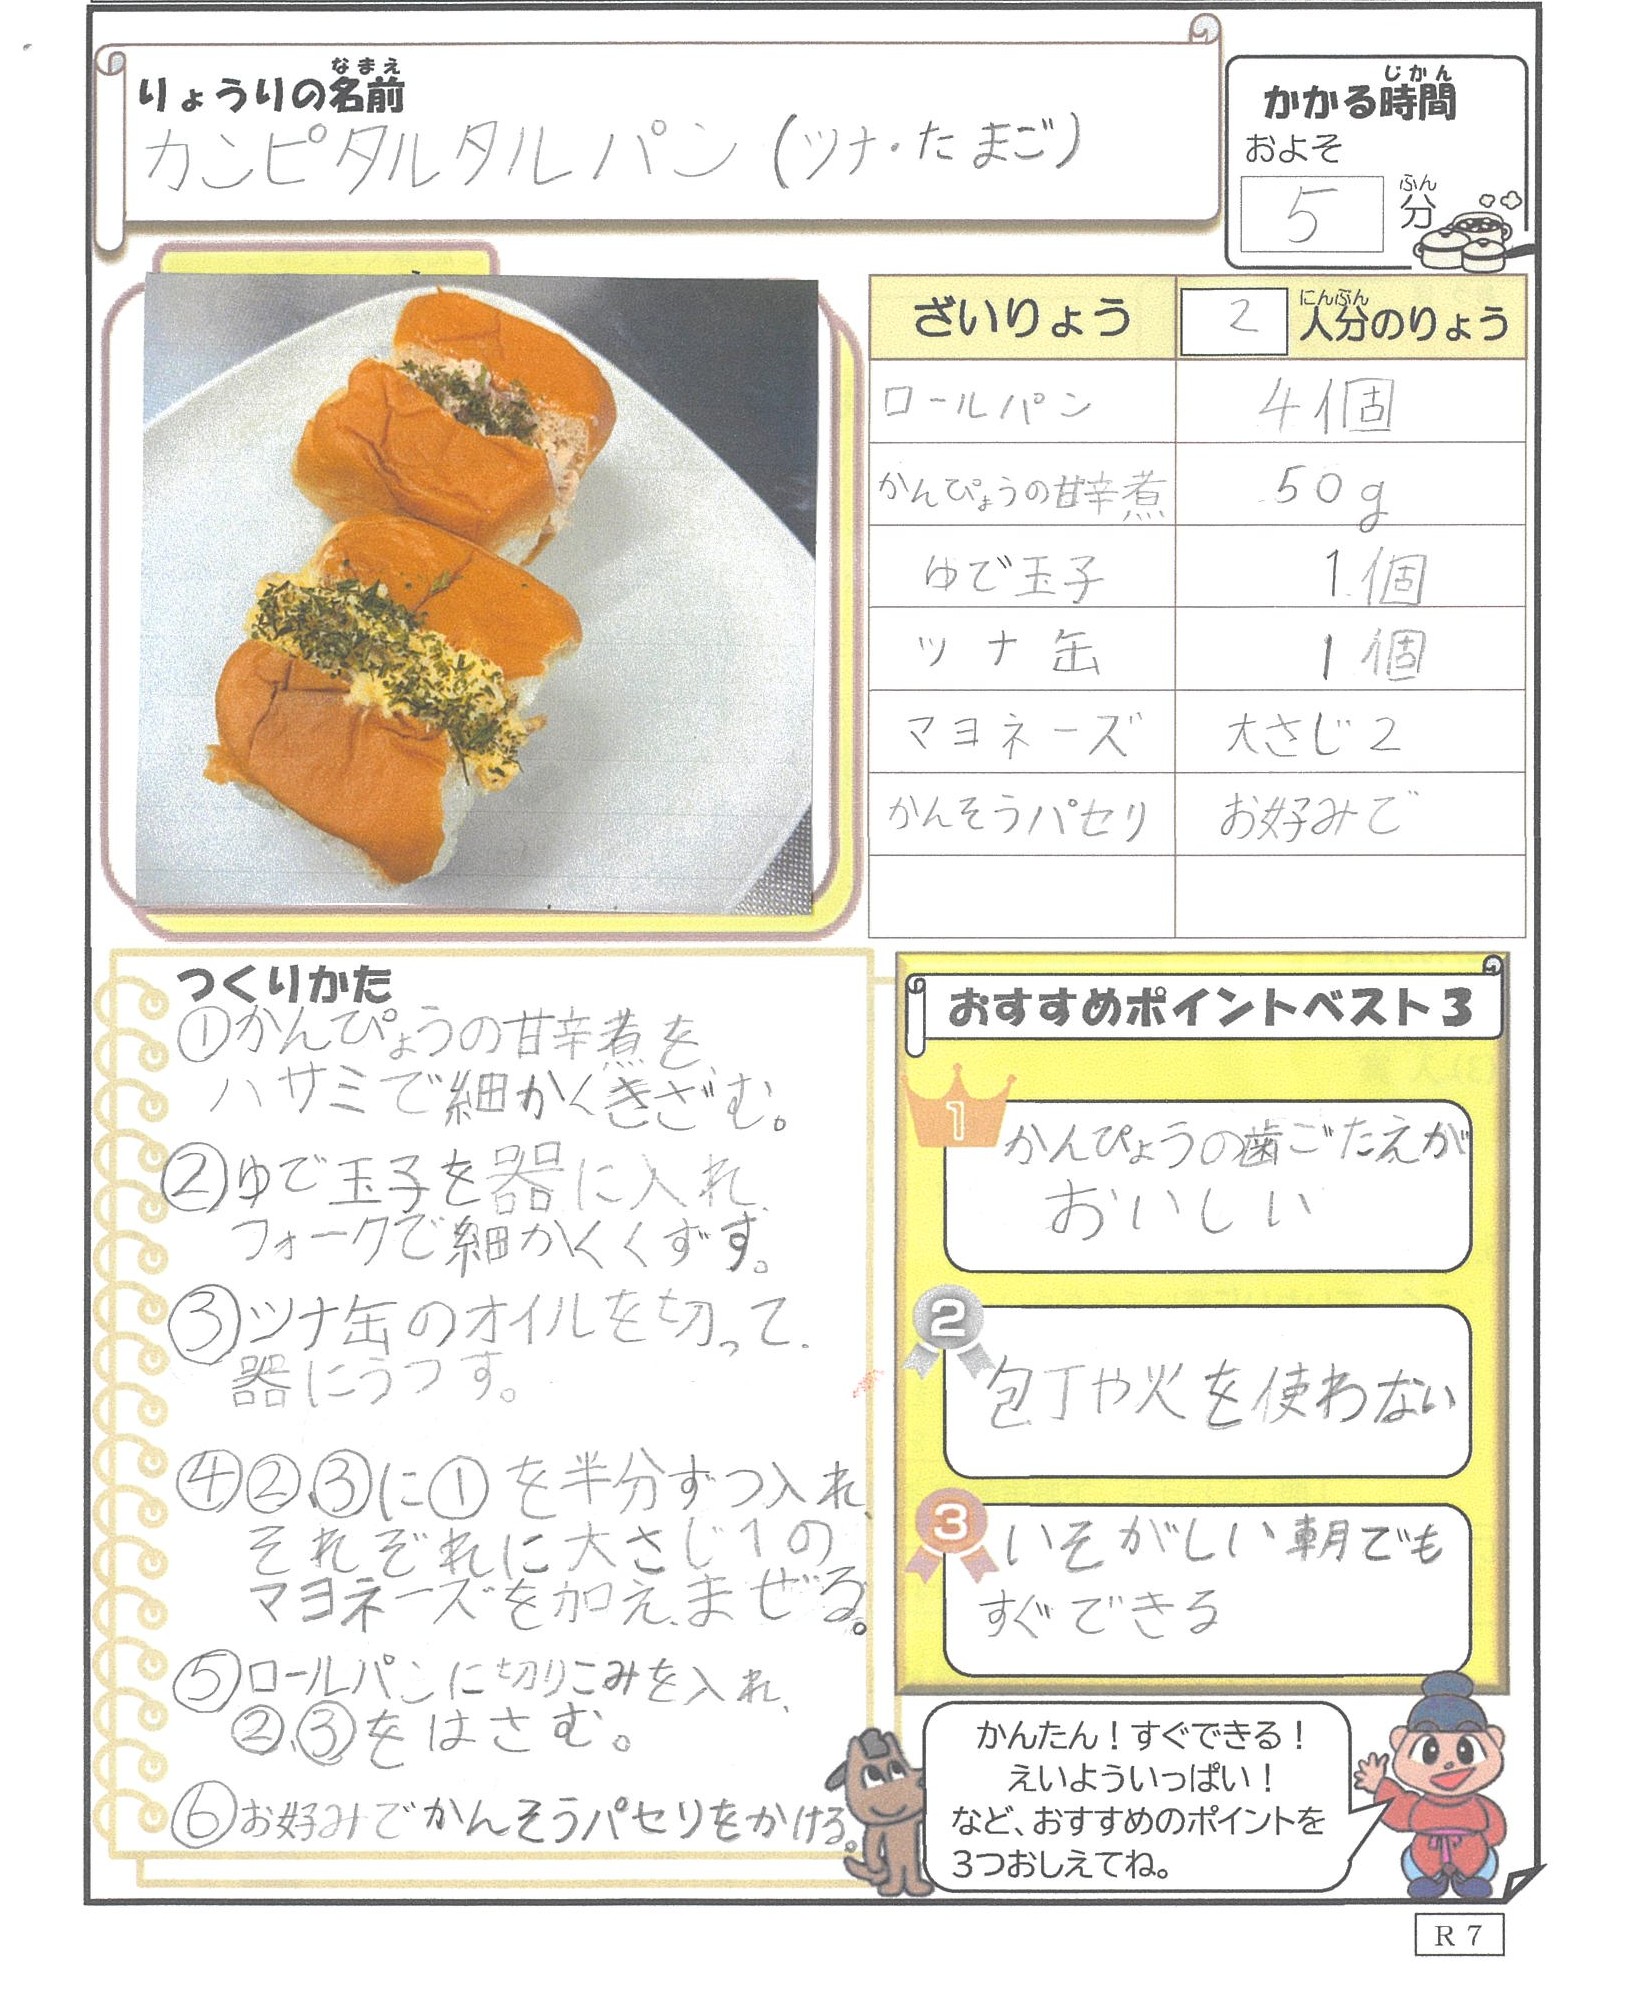 りょうりの名前
なまえ
カンピタルタルパン(ツナ・たまご)
かかる時間
じかん
およそ
5
分
ふん
ざいりょう
2
人分のりょう
にんぶん
ロールパン 4個
かんぴょうの甘辛煮 50g
ゆで玉子 1個
ツナ缶 1個
マヨネーズ 大さじ2
かんそうパセリ お好みで
つくりかた
①かんぴょうの甘辛煮を、
ハサミで細かくきざむ。
②ゆで玉子を器に入れ、
フォークで細かくくずす。
③ツナ缶のオイルを切って、
器にうつす。
④②、③に①を半分ずつ入れ、
それぞれに大さじ1の
マヨネーズを加え、まぜる。
⑤ロールパンに切りこみを入れ、
②、③をはさむ。
⑥お好みでかんそうパセリをかける。
おすすめポイントベスト3
1
かんぴょうの歯ごたえが
おいしい
2
包丁や火を使わない
3
いそがしい朝でも
すぐできる
かんたん!すぐできる!
えいよういっぱい!
など、おすすめのポイントを
3つおしえてね。
R7